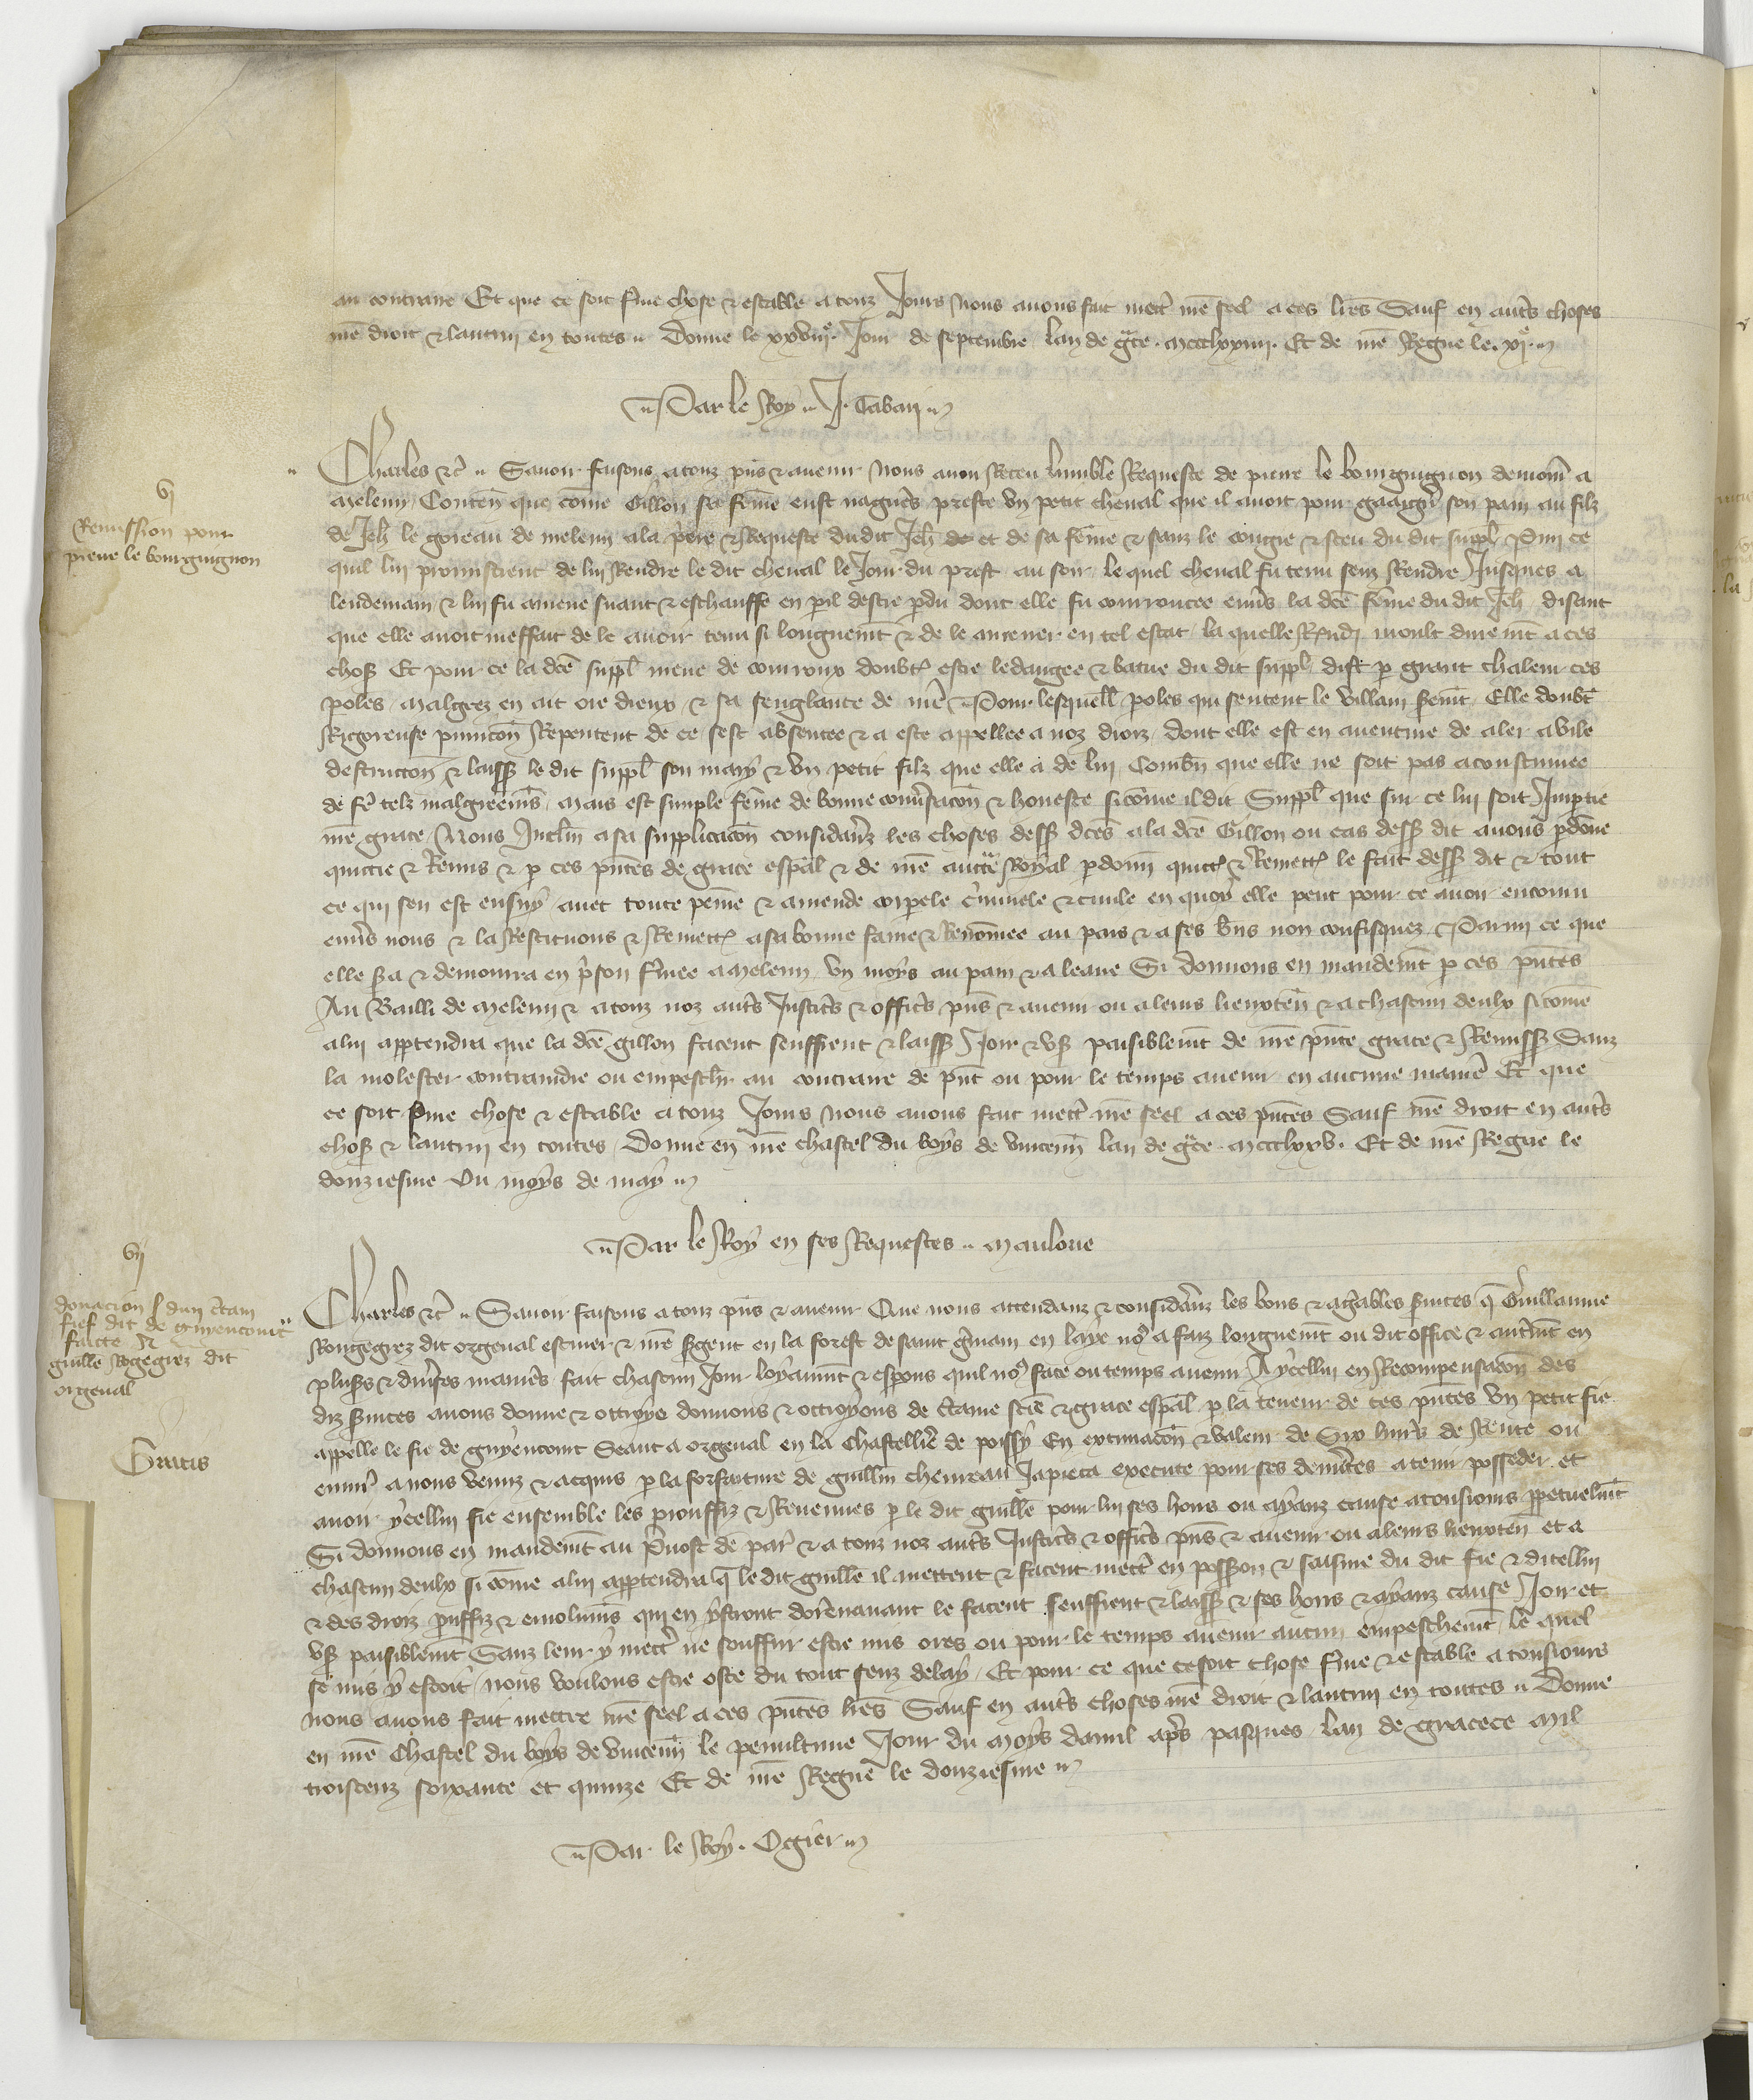 au contraire Et que ce soit fme chose & estable a touz Jours Nous auons fait mettr nrē seel a ces lres Sauf en autrs choses
nrē droit & lautrui en toutes Donne le xxviije Jour de septembre lan de gce mccclxxiiij. Et de nrē Regne le xje
Par le Roy J. Tabari
Charles &c Sauoir faisons a touz pns & auenir Nous auon Receu lumble Requeste de pierre le bourguignon demorā a
meleun Contenā que cōme Gillon sa fēme eust nagueres preste vn petit cheual que il auoit pour gaaigner son pain au filz
de Jeh le goreau de meleun a la priere & Requeste du dit Jeh et de sa fēme & sanz le congie & sceu du dit suppl Parmi ce
quil lui promistrent de lui Rendre le dit cheual le Jour du prest au soir le quel cheual fu tenu senz Rendre Jusques a
lendemain & lui fu amene suant & eschauffe en pil destre pdu dont elle fu courroucee enuers la dcē fēme du dit Jeh disant
que elle auoit meffait de le auoir tenu si longuemt & de le amener en tel estat la quelle Rendi moult duremt a ces
choses Et pour ce la dcē suppl meue de courroux doubt estre ledangee & batue du dit suppl dist p grant chaleur ces
poles malgrez en ait ore dieux & sa senglante de mē Pour lesquell poles qui sentent le villain sermt Elle doubt
Rigoreuse punicōn Repentent de ce sest absentee & a este appellee a noz droiz dont elle est en auenture de aler a vile
destructōn & laiss le dit suppl son mary & vn petit filz que elle a de lui Combn que elle ne soit pas acoustumee
de fe telz malgreemēs mais est simple fēme de bonne conuersacōn & honeste si cōme il dit Suppl que sur ce lui soit Impartie
nrē grace Nous Inclin a sa supplicacōn considerāz les choses dess dcēs a la dcē Gillon ou cas dess dit auons pdōne
quictie & Remis & p ces pntēs de grace espal & de nrē auctē Royal pdonn quitt & Remett le fait dess dit & tout
ce qui sen est ensuy auec toute peine & amende corpele crimnele & ciuile en quoy elle peut pour ce auoir encouru
enuers nous & la Restituons & Remett a sa bonne fame & Renōmee au pais & a ses bns non confisquez Parmi ce que
elle sa & demourra en prson fmee a meleun vn moys au pain & a leaue Si donnons en mandemt p ces pntēs
Au Bailli de meleun & a touz noz autrs Justicrs & officrs pns & auenir ou a leurs lieuxten & a chascun deulx si cōme
a lui appartendra que la dcē gillon facent seuffrent & laiss Joir & vs paisiblemt de nrē pnte grace & Remiss Sanz
la molester contraindre ou empeschr au contraire de pnt ou pour le temps auenir en aucune manie Et que
ce soit fme chose & estable a touz Jours Nous auons fait mettr nrē seel a ces pntēs Sauf nrē droit en autrs
chos & lautrui en toutes Donne en nrē chastel du boys de vincenn lan de gce mccclxxv. Et de nrē Regne le
douziesme Ou moys de may
Par le Roy en ses Requestes Mauloue
Charles &c Sauoir faisons a touz pns & auenir Que nous attendanz & considerāz les bons & agables seruices q Guillaume
Rougegrez dit orgeual escuier & nrē sgent en la forest de saint gmain en laye no9 a faiz longuemt ou dit office & autremt en
pluss & diuerses manies fait chascun Jour loyaumt & espons quil no9 face ou temps auenir A ycellui en Recompensacōn des
diz seruices auons donne & ottroye donnons & ottroyons de ctaine sciē & grace espal p la teneur de ces pntēs vn petit fie
appelle le fie de guyencourt Seant a orgeual en la Chastelle de poissy En extimacōn & valeur de Six liurs de Rente ou
enuir a nous venuz & acquis p la forfaiture de guillin cheureau Japieca execute pour ses demerites a tenir posseder et
auoir ycellui fie ensemble les prouffiz & Reuenues p le dit guille pour lui ses hoirs ou ayanz cause a tousiours ppetuelmt
Si donnons en mandemt au Preuost de par & a touz noz autrs Justicrs & officrs pns & auenir ou a leurs lieuxten et a
chascun deulx si cōme a lui appartendra q le dit guille il mettent & facent mettr en possion & saisine du dit fie & dicellui
& des droiz pouffiz & emolumēs qui en ystront dorenauant le facent seuffrent & laiss & ses hoirs & ayanz cause Joir et
vs paisiblemt Sanz leur y mettr ne souffrir estre mis ores ou pour le temps auenir aucun empeschemt le quel
se mis y estoit nous voulons estre oste du tout senz delay Et pour ce que ce soit chose fme & estable a tousiours
nous auons fait mettre nrē seel a ces pntēs lres Sauf en autrs choses nrē droit & lautrui en touttes Donne
en nrē Chastel du boys de vincenn le penultime Jour du moys dauril aps pasques lan de gracece mil
troiscenz soixante et quinze Et de nrē Regne le douziesme
Par le Roy. Ogier
vj
Remission pour
pierre le bourguignon
vij
donacion dun ctain
fief dit de guyencourt
faicte a
guille Rogegrez dit
orgeual
Gratis